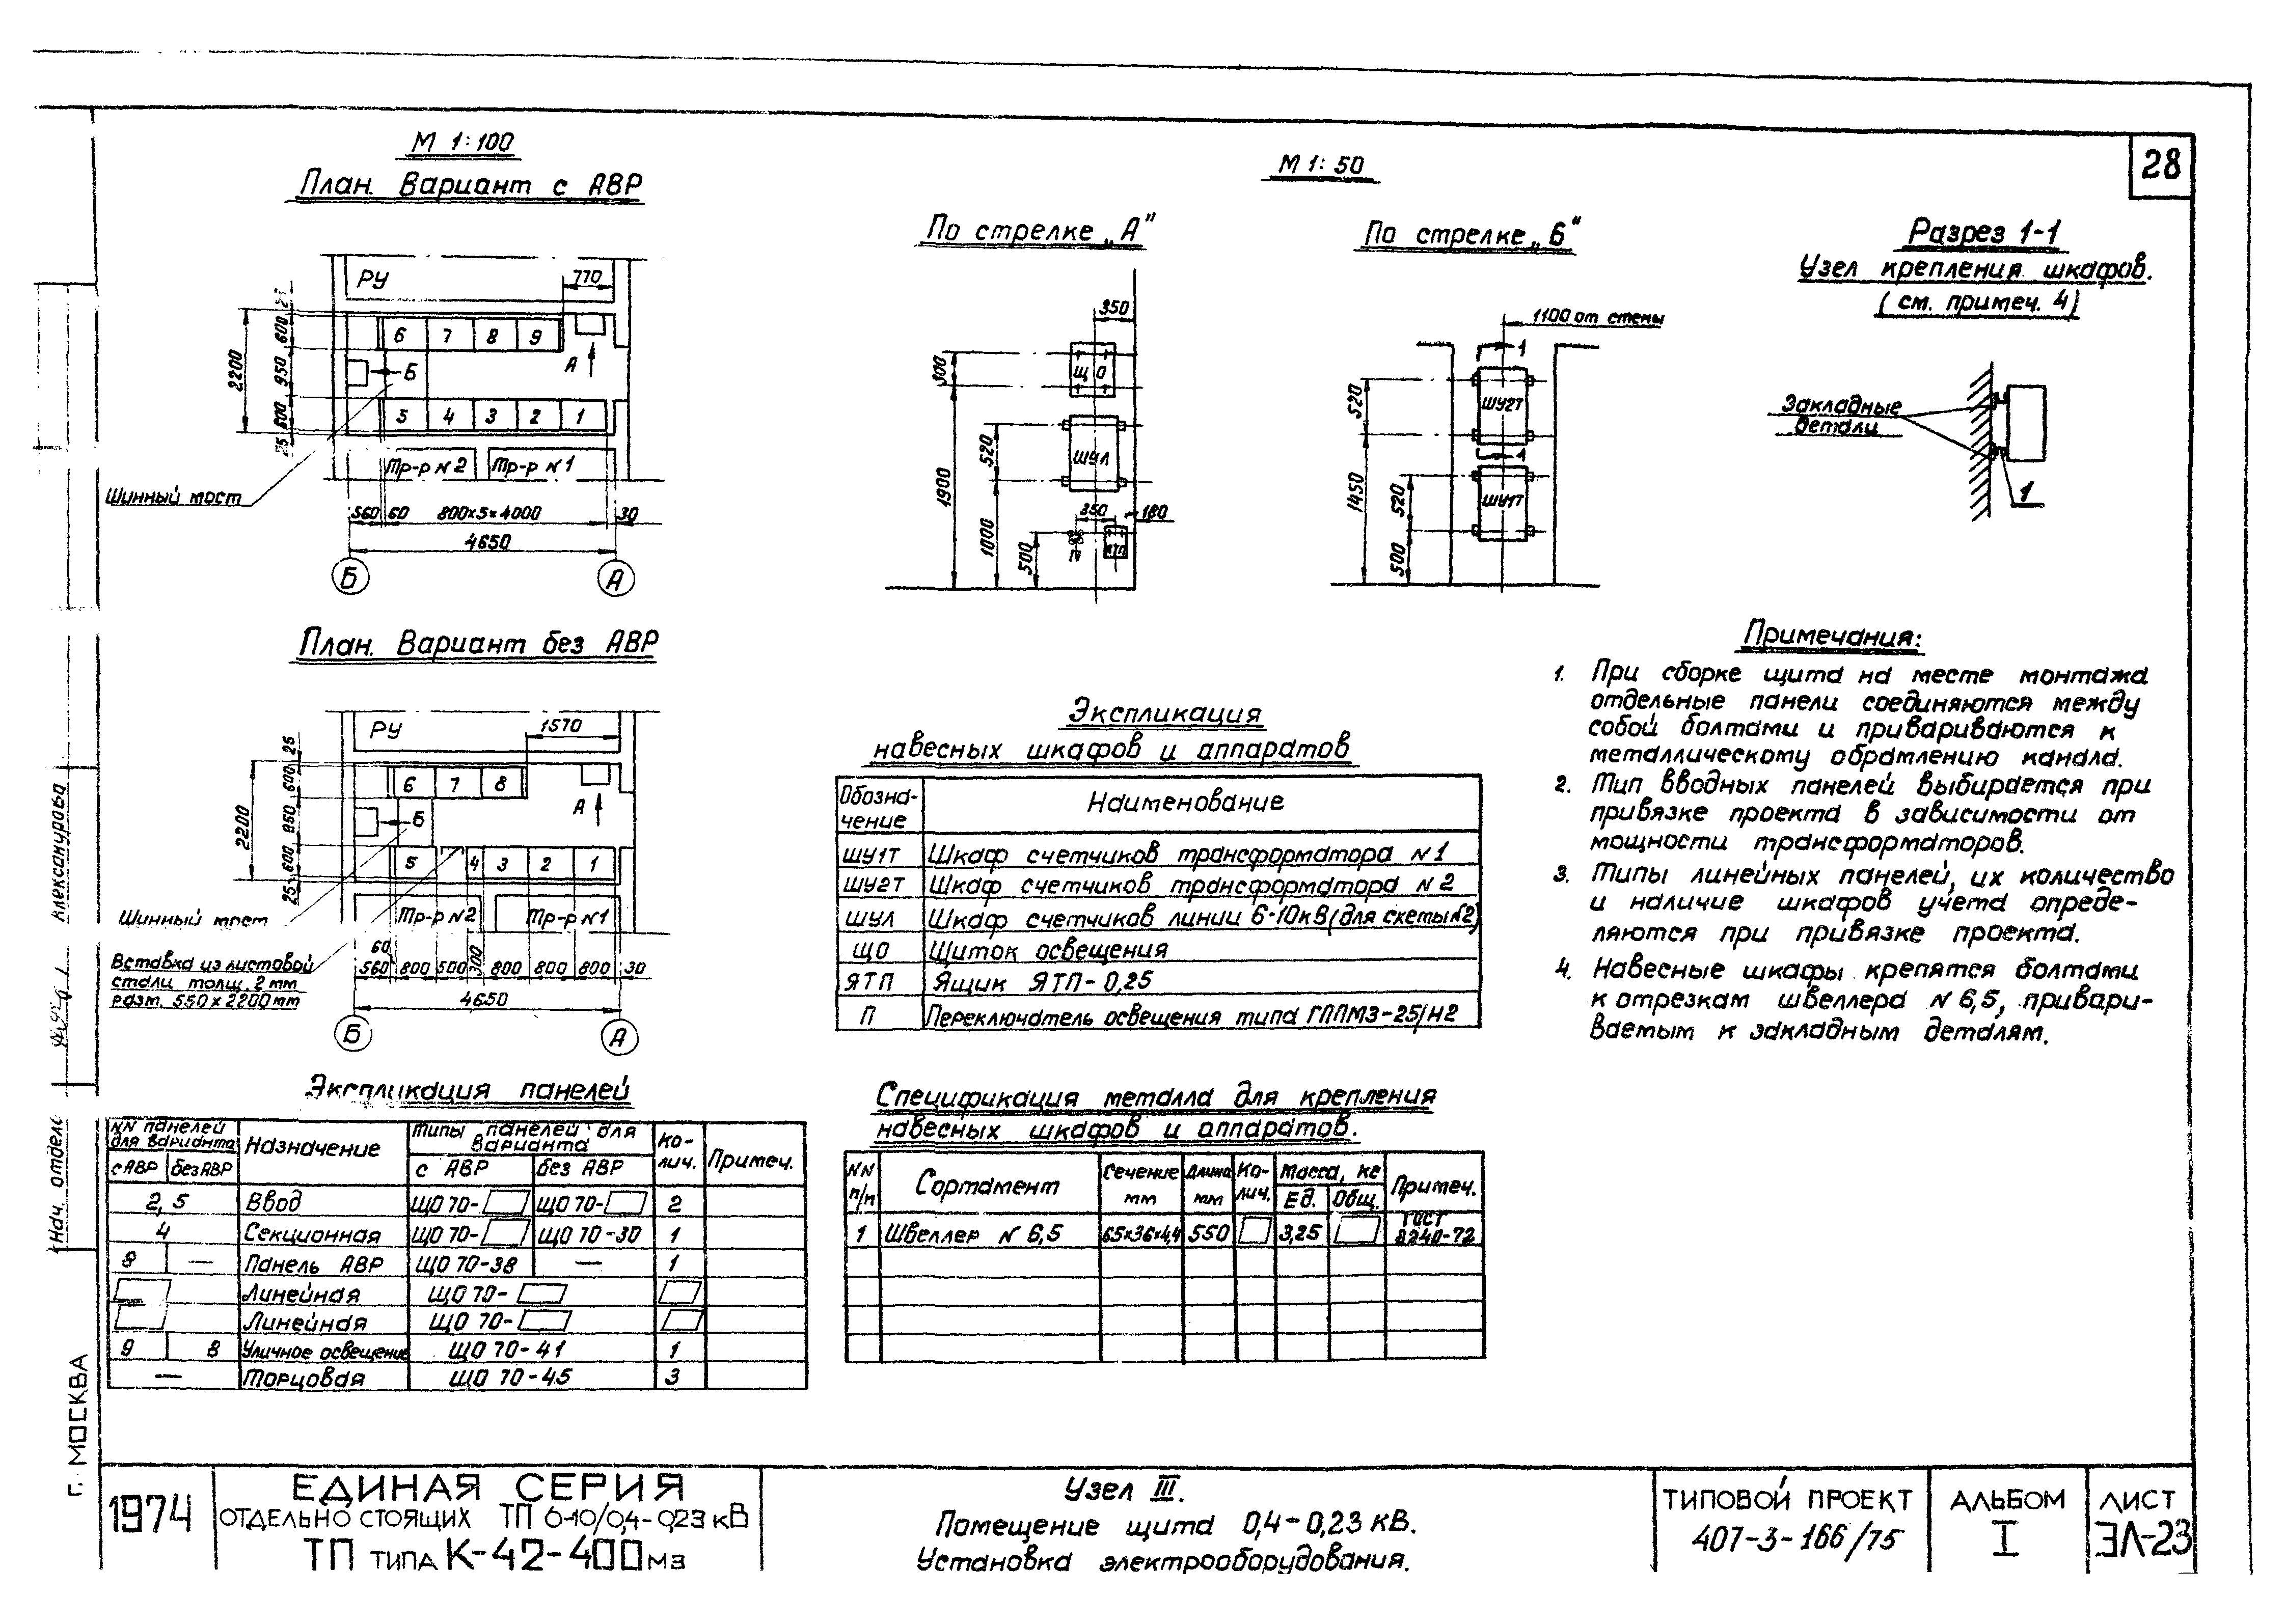 28
М 1:100
План. Вариант с АВР
РУ
770
6 7 8 9
А
Б
5 4 3 2 1
Тр-р №2 Тр-р №1
Шинный мост
25 600 950 600 25
2200
560 60 800×5=4000 30
4650
Б А
План. Вариант без АВР
РУ
1570
6 7 8
А
Б
5 4 3 2 1
Тр-р №2 Тр-р №1
25 600 950 600 25
2200
Шинный мост
Вставка из листовой
стали толщ. 2 мм
разм. 550×2200 мм
60
560 800 500 300 800 800 800 30
4650
Б А
М 1:50
По стрелке „А"
350
300
ЩО
520
ШУЛ
1900
1000
350 180
500
П ЯТП
По стрелке „Б"
1100 от стены
1
ШУ2Т
520
1
1450
ШУ1Т
520
500
Разрез 1-1
Узел крепления шкафов.
(см. примеч. 4)
Закладные
детали
1
Примечания:
1. При сборке щита на месте монтажа
отдельные панели соединяются между
собой болтами и привариваются к
металлическому обратлению канала.
2. Тип вводных панелей выбирается при
привязке проекта в зависимости от
мощности трансформаторов.
3. Типы линейных панелей, их количество
и наличие шкафов учета опреде-
ляются при привязке проекта.
4. Навесные шкафы крепятся болтами
к отрезкам швеллера № 6,5, привари-
ваемым к закладным деталям.
Экспликация
навесных шкафов и аппаратов
Обозна-
чение Наименование
ШУ1Т Шкаф счетчиков трансформатора №1
ШУ2Т Шкаф счетчиков трансформатора №2
ШУЛ Шкаф счетчиков линии 6-10кВ (для схемы №2)
ЩО Щиток освещения
ЯТП Ящик ЯТП-0,25
П Переключатель освещения типа ГППМЗ-25/Н2
Экспликация панелей
NN панелей
для варианта Назначение Типы панелей для
варианта Ко-
лич. Примеч.
с АВР без АВР с АВР без АВР
2, 5 Ввод ЩО 70- ЩО 70- 2
4 Секционная ЩО 70- ЩО 70-30 1
8 — Панель АВР ЩО 70-38 — 1
Линейная ЩО 70-
Линейная ЩО 70-
9 8 Уличное освещение ЩО 70-41 1
— Торцовая ЩО 70-45 3
Спецификация металла для крепления
навесных шкафов и аппаратов.
NN
п/п Сортамент Сечение
мм Длина
мм Ко-
лич. Масса, кг Примеч.
Ед. Общ.
1 Швеллер № 6,5 65×36×4,4 550 3,25 ГОСТ
8240-72
Нач. отдела
Александрова
г. МОСКВА
1974
ЕДИНАЯ СЕРИЯ
ОТДЕЛЬНО СТОЯЩИХ ТП 6-10/0,4-0,23 кВ
ТП ТИПА К-42-400 МЗ
Узел III.
Помещение щита 0,4-0,23 кВ.
Установка электрооборудования.
ТИПОВОЙ ПРОЕКТ
407-3-166/75
АЛЬБОМ
I
ЛИСТ
ЭЛ-23